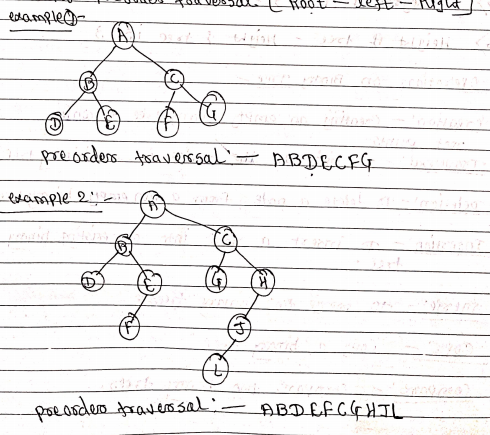 preorder traversal [Root - left - Right]
example ①-
A
B C
D E F G
preorder traversal :- ABDECFG
example 2:-
A
B C
D E G H
F J
L
preorder traversal :- ABDEFCGHJL